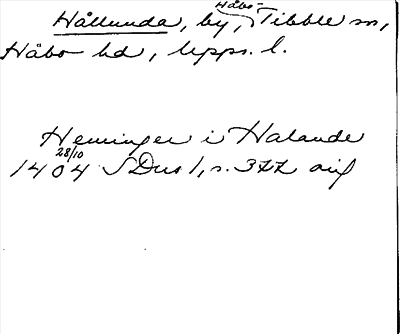 Hållunda, by, Håbo-Tibble sn,
Håbo hd, Upps. l.
Heminger i Halande
28/10
1404 SDns 1, s. 377 orig